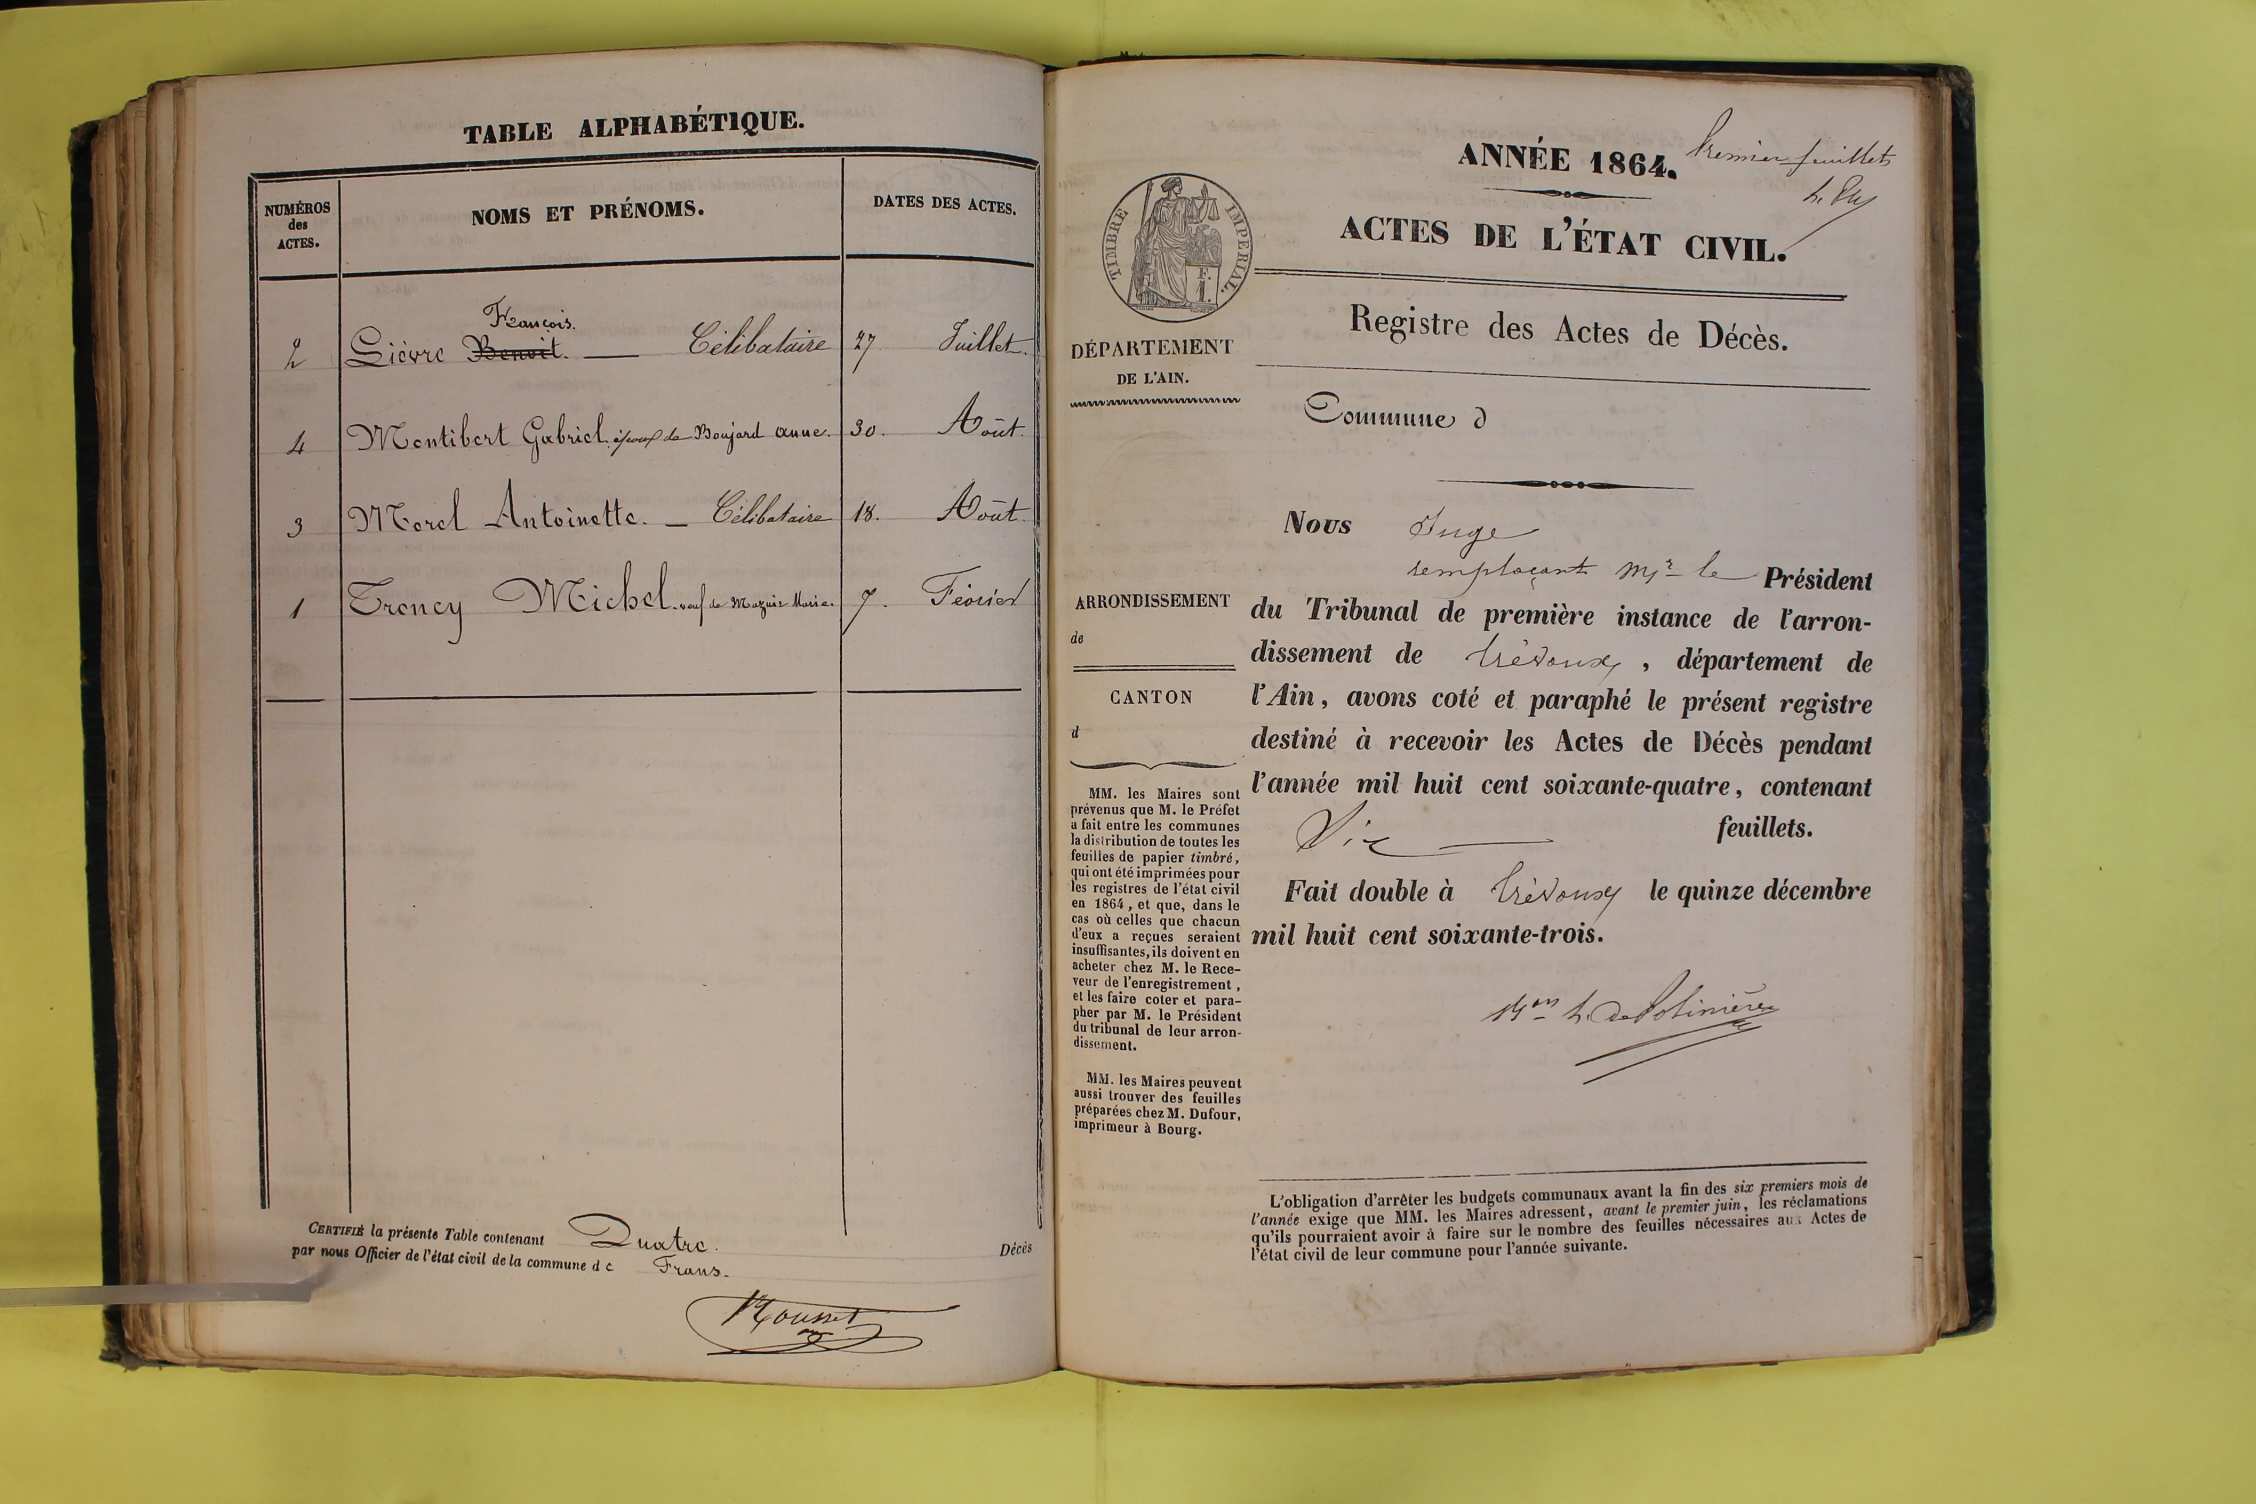 TABLE ALPHABÉTIQUE.
NUMÉROS des ACTES.
NOMS ET PRÉNOMS.
DATES DES ACTES.
François.
2 Lièvre Benoit. — Célibataire 27 Juillet.
4 Montibert Gabriel. époux de Boujard anne. 30. Août.
3 Morel Antoinette. — Célibataire 18. Août.
1 Troncy Michel. veuf de Mazuir Marie. 7. Février
CERTIFIÉ la présente Table contenant Quatre. Décès
par nous Officier de l'état civil de la commune de Frans.
Rousset
ANNÉE 1864.
Premier feuillets
ACTES DE L'ÉTAT CIVIL.
TIMBRE IMPERIAL.
Registre des Actes de Décès.
DÉPARTEMENT
DE L'AIN.
Commune d
Nous Juge
remplaçant Mr le Président
du Tribunal de première instance de l'arron-
dissement de Trévoux, département de
l'Ain, avons coté et paraphé le présent registre
destiné à recevoir les Actes de Décès pendant
l'année mil huit cent soixante-quatre, contenant
Six — feuillets.
Fait double à Trévoux le quinze décembre
mil huit cent soixante-trois.
ARRONDISSEMENT
de
CANTON
d
MM. les Maires sont
prévenus que M. le Préfet
a fait entre les communes
la distribution de toutes les
feuilles de papier timbré,
qui ont été imprimées pour
les registres de l'état civil
en 1864, et que, dans le
cas où celles que chacun
d'eux a reçues seraient
insuffisantes, ils doivent en
acheter chez M. le Rece-
veur de l'enregistrement,
et les faire coter et para-
pher par M. le Président
du tribunal de leur arron-
dissement.
MM. les Maires peuvent
aussi trouver des feuilles
préparées chez M. Dufour,
imprimeur à Bourg.
L'obligation d'arrêter les budgets communaux avant la fin des six premiers mois de
l'année exige que MM. les Maires adressent, avant le premier juin, les réclamations
qu'ils pourraient avoir à faire sur le nombre des feuilles nécessaires aux Actes de
l'état civil de leur commune pour l'année suivante.